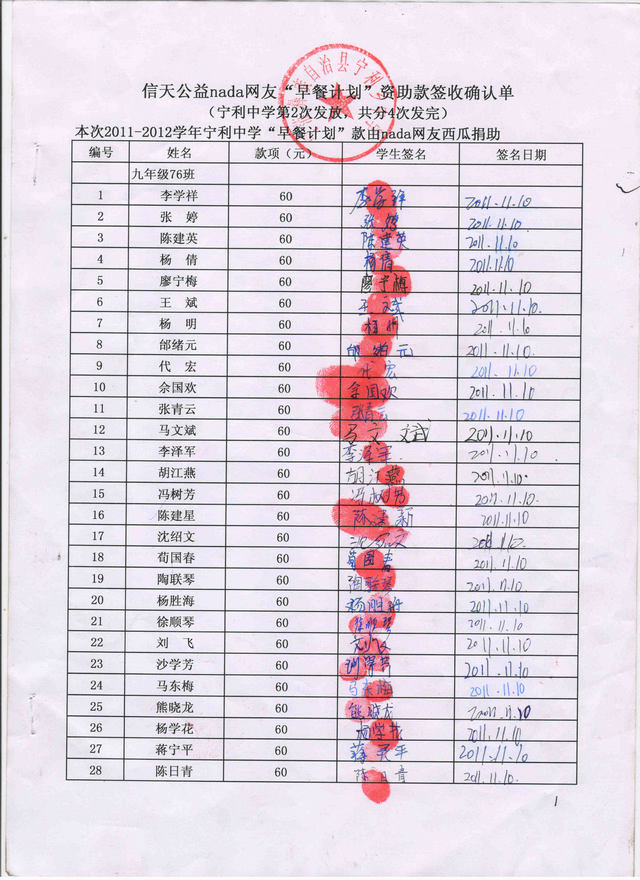 信天公益nada网友“早餐计划”资助款签收确认单
（宁利中学第2次发放，共分4次发完）
本次2011-2012学年宁利中学“早餐计划”款由nada网友西瓜捐助
编号 姓名 款项（元） 学生签名 签名日期
九年级76班
1 李学祥 60 李学祥 2011.11.10
2 张 婷 60 张婷 2011.11.10
3 陈建英 60 陈建英 2011.11.10
4 杨 倩 60 杨倩 2011.11.10
5 廖宁梅 60 廖宁梅 2011.11.10
6 王 斌 60 王斌 2011.11.10
7 杨 明 60 杨明 2011.11.10
8 邰绪元 60 绪元 2011.11.10
9 代 宏 60 代宏 2011.11.10
10 佘国欢 60 佘国欢 2011.11.10
11 张青云 60 张青云 2011.11.10
12 马文斌 60 马文斌 2011.11.10
13 李泽军 60 李泽军 2011.11.10
14 胡江燕 60 胡江燕 2011.11.10
15 冯树芳 60 冯树芳 2011.11.10
16 陈建星 60 陈建新 2011.11.10
17 沈绍文 60 沈绍文
18 荀国春 60 荀国春 2011.11.10
19 陶联琴 60 陶联琴 2011.11.10
20 杨胜海 60 杨胜海 2011.11.10
21 徐顺琴 60 徐顺琴 2011.11.10
22 刘 飞 60 刘飞 2011.11.10
23 沙学芳 60 沙学芳 2011.11.10
24 马东梅 60 马东梅 2011.11.10
25 熊晓龙 60 熊晓龙 2011.11.10
26 杨学花 60 杨学花 2011.11.10
27 蒋宁平 60 蒋宁平 2011.11.10
28 陈日青 60 陈日青 2011.11.10
1